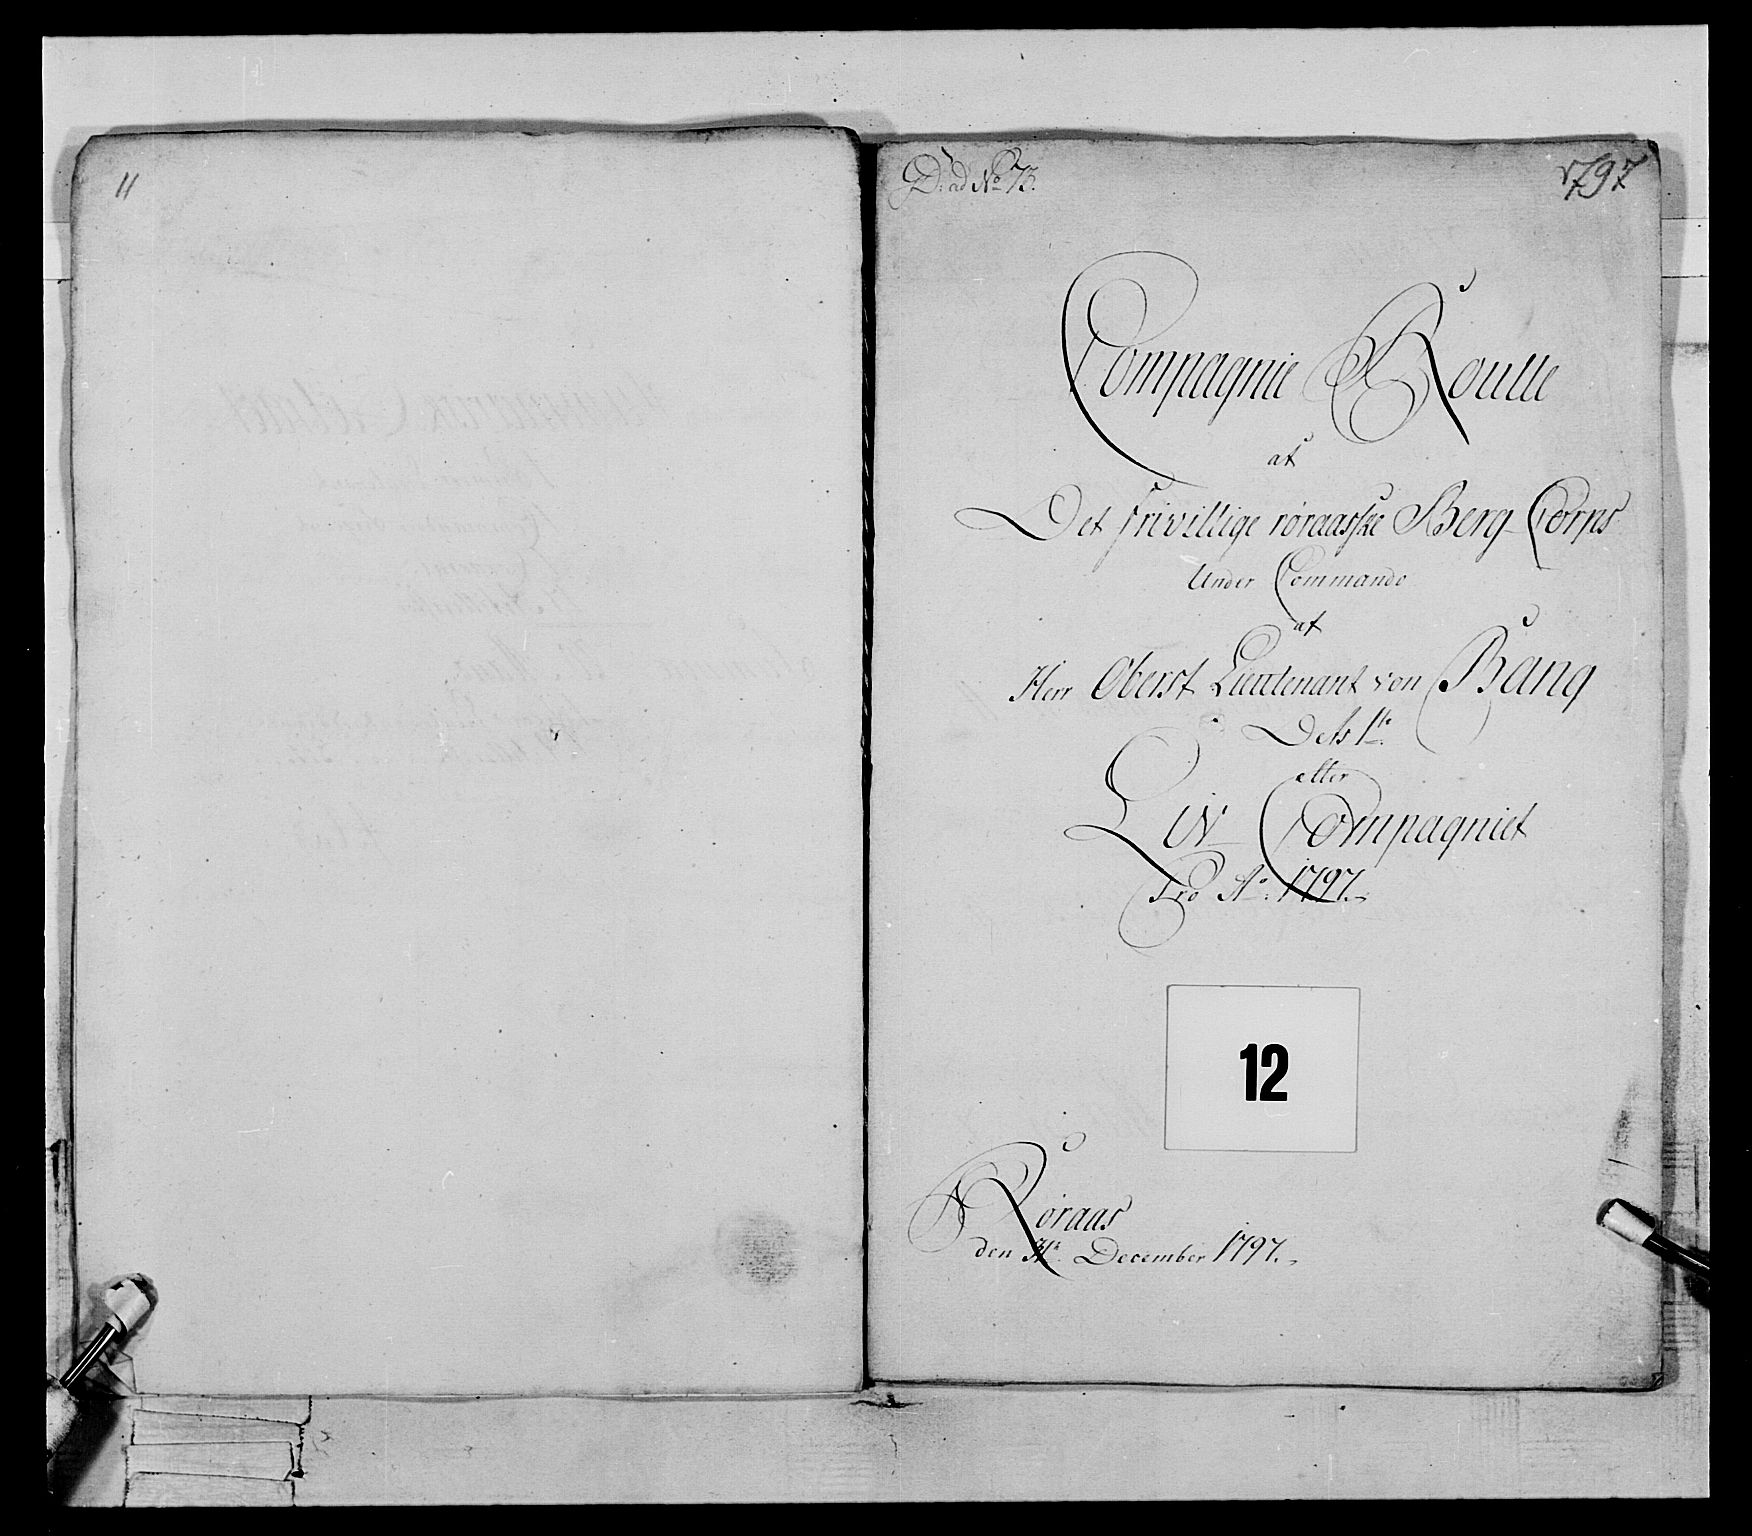 11
D: ad No 73.
1797
Compagnie Roulle
af
Det frivillige røraaske Berg-Corps
Under Commando
af
Herr Oberst Lieutenant von Bang
Dets 1te
eller
Liv Compagniet
Pro Ao: 1797.
12
Røraas
den December 1797.